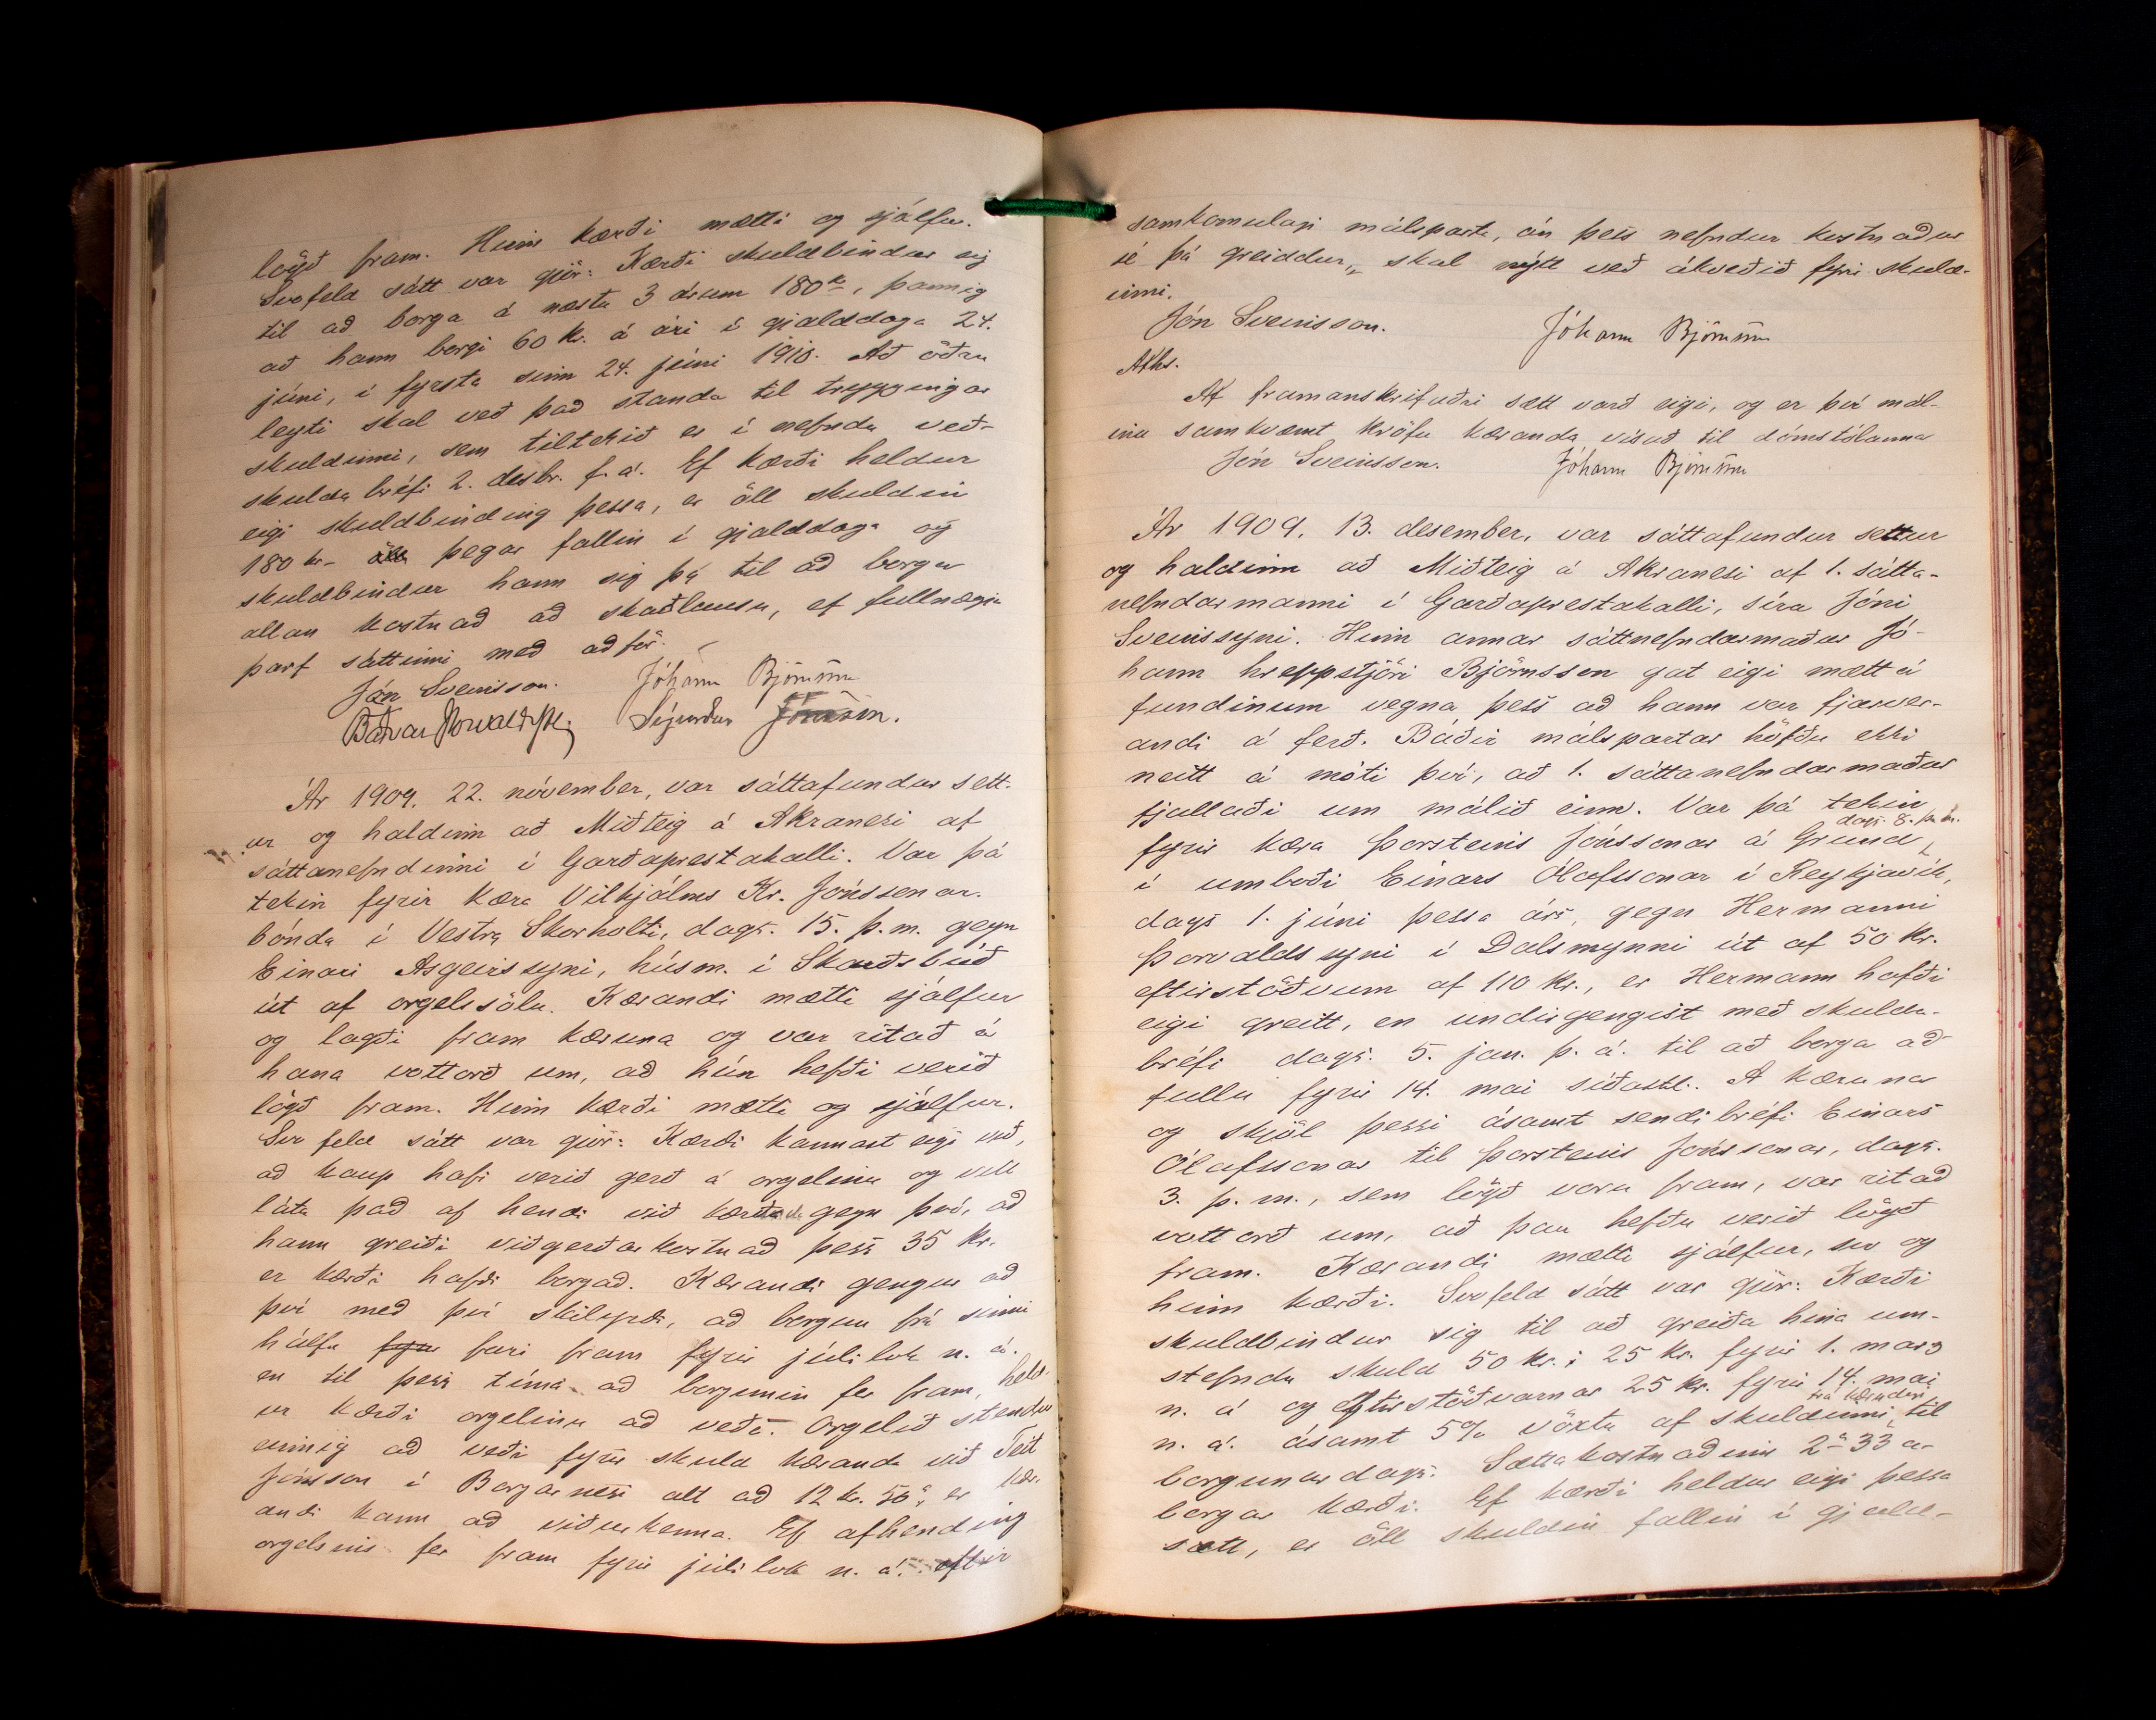 lögð fram. Hinn kærði mætti og sjálfur.
Svofeld sátt var gjör: Kærði skuldbindur sig
til að borga á næstu 3 árum 180 kr, þannig
að hann borgi 60 kr. á ári í gjalddaga 24.
júní, í fyrsta sinn 24. júní 1910. Að öðru
leyti skal veð það standa til tryggingar
skuldinni, sem tiltekið er í nefndu veð-
skuldabréfi 2. desbr. f. á. Ef kærði heldur
eigi skuldbinding þessa, er öll skuldin
180 kr. þegar fallin í gjalddaga og
skuldbindur hann sig þá til að borga
allan kostnað að skaðlausu, ef fullnægja
þarf sáttinni með aðför.
Jón Sveinsson. Jóhann Björnsson
Böðvar Þorvaldss. Sigurður Jónsson.
Ár 1909. 22. nóvember, var sáttafundur sett-
ur og haldinn að Miðteig á Akranesi af
sáttanefndinni í Garðaprestakalli. Var þá
tekin fyrir kæra Vilhjálms Kr. Jónssonar.
bónda í Vestra Skorholti, dags. 15. þ. m. gegn
Einari Asgeirssyni, húsm. í Skarðsbúð
út af orgelssölu. Kærandi mætti sjálfur
og lagði fram kæruna og var ritað á
hana vottorð um, að hún hefði verið
lögð fram. Hinn kærði mætti og sjálfur.
Svofeld sátt var gjör: Kærði kannast eigi við,
að kaup hafi verið gerð á orgelinu og vill
láta það af hendi við gegn því, að
hann greiði viðgerðarkostnað þess 35 kr.
er kærði hafði borgað. Kærandi gengur að
því með því skilyrði, að borgun frá sinni
hálfu fyrir fari fram fyrir júlílok n. á.
en til þess tíma að borgunin fer fram, held-
ur kærði orgelinu að veði. Orgelið stendur
einnig að veði fyrir skuld kæranda við Teit
Jónsson í Borgarnesi alt að 12 kr. 50 a, er kær-
andi kann að viðurkenna. Ef afhending
orgelsins fer fram fyrir júlílok n. á. eftir
samkomulagi málsparta, án þess nefndur kostnaður
sé þá greiddur, skal nýtt veð ákveðið fyrir skuld-
inni.
Jón Sveinsson. Jóhann Björnsson
Aths.
Af framanskrifaðri sátt varð eigi, og er því mál-
inu samkvæmt kröfu kæranda vísað til dómstólanna
Jón Sveinsson. Jóhann Björnsson
Ár 1909. 13. desember, var sáttafundur settur
og haldinn að Miðteig á Akranesi af 1. sátta-
nefndarmanni í Garðaprestakalli, síra Jóni
Sveinssyni. Hinn annar sáttnefndarmaður Jó-
hann hreppstjóri Björnsson gat eigi mætt á
fundinum vegna þess að hann var fjarver-
andi á ferð. Báðir málspartar höfðu ekki
neitt á móti því, að 1. sáttanefndarmaður
fjallaði um málið einn. Var þá tekin
fyrir kæra Þorsteins Jónssonar á Grund dags. 8. þ. m.
í umboði Einars Ólafssonar í Reykjavík,
dags 1. júní þessa árs, gegn Hermanni
Þorvaldssyni í Dalsmynni út af 50 kr.
eftirstöðvum af 110 kr., er Hermann hafði
eigi greitt, en undirgengist með skulda-
bréfi dags. 5. jan. þ. á. til að borga að
fullu fyrir 14. maí síðastl. Á kæruna
og skjöl þessi ásamt sendibréfi Einars
Ólafssonar til Þorsteins Jónssonar, dags.
3. þ. m., sem lögð voru fram, var ritað
vottorð um, að þau hefðu verið lögð
fram. Kærandi mætti sjálfur, svo og
hinn kærði. Svofeld sátt var gjör: Kærði
skuldbindur sig til að greiða hina um-
stefndu skuld 50 kr.: 25 kr. fyrir 1. marz
n. á og eftirstöðvarnar 25 kr. fyrir 14. maí
n. á. ásamt 5% vöxtu af skuldinni til
borgunardags. Sáttakostnaðinn 2 kr 33 a
borgar kærði. Ef kærði heldur eigi þessa
sátt, er öll skuldin fallin í gjald-